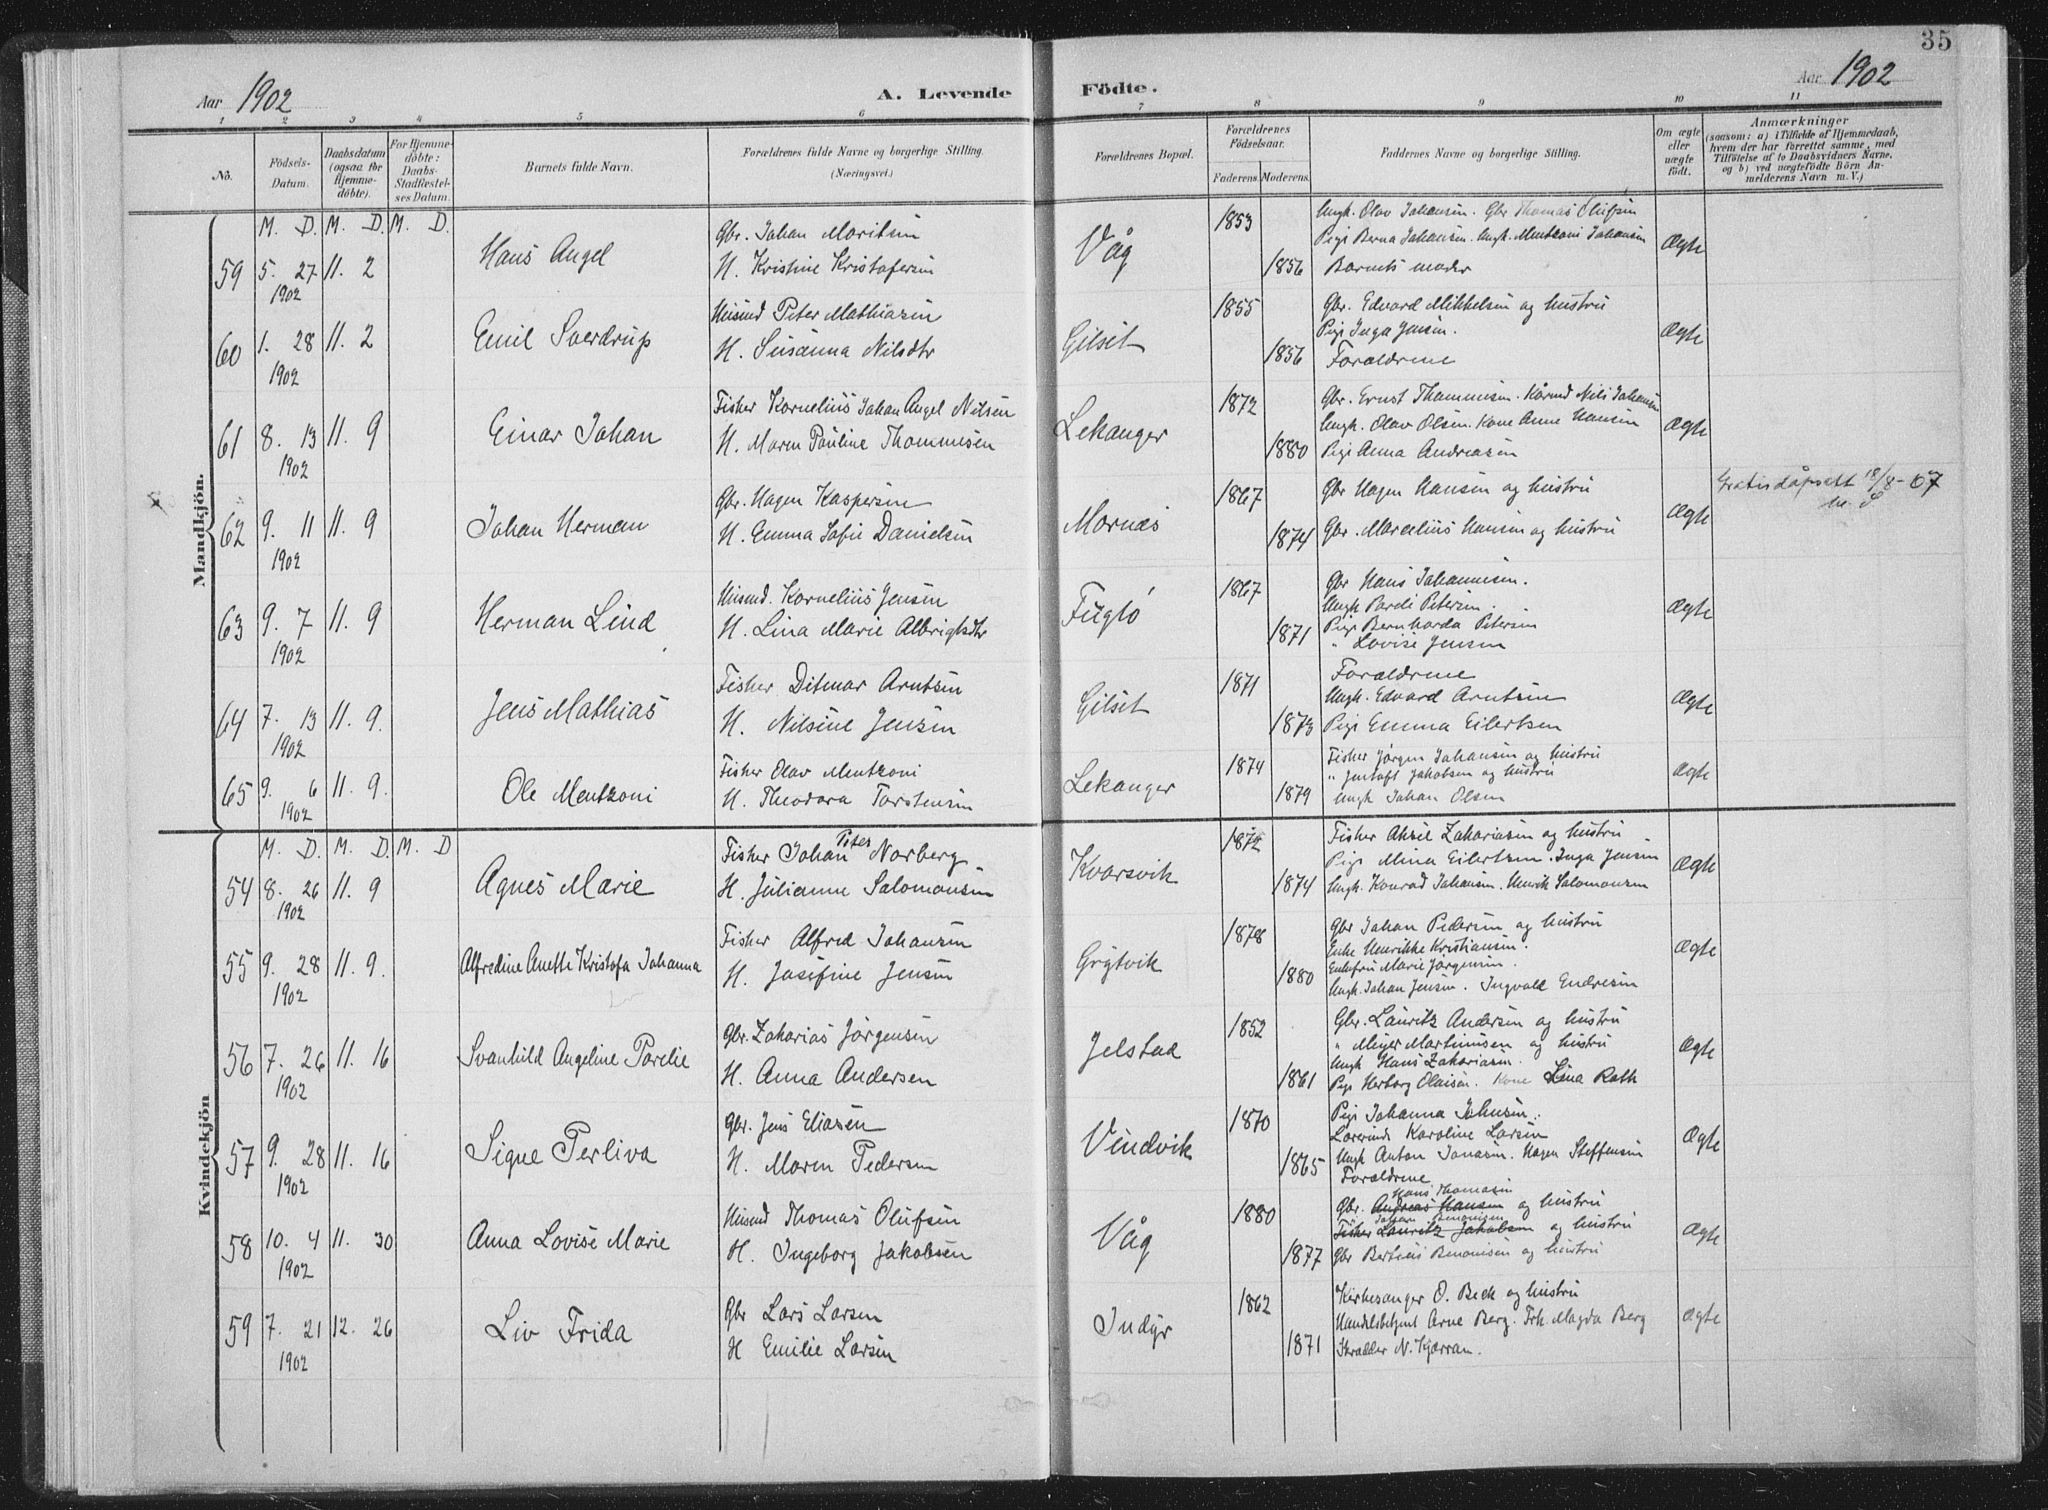 35
Aar 1902
A. Levende
Födte.
Aar 1902
1 2 3 4 5 6 7 8 9 10 11
No.
Födsels-Datum.
Daabsdatum (ogsaa for Hjemmedöbte).
For Hjemmedöbte: Daabs-Stadfæstelses Datum.
Barnets fulde Navn.
Forældrenes fulde Navne og borgerlige Stilling.
(Næringsvei.)
Forældrenes Bopæl.
Forældrenes Födselsaar.
Faderens. Moderens.
Faddernes Navne og borgerlige Stilling.
Om ægte eller uægte födt.
Anmærkninger
(saasom: a) i Tilfælde af Hjemmedaab, hvem der har forrettet samme, med Tilföielse af to Daabsvidners Navne. og b) ved uægtefödte Börn Anmelderens Navn m. V.)
Mandkjön.
M. D. M. D. M. D.
59 5. 27 1902 11. 2 Hans Angel
Gbr. Johan Moritsen
H. Kristine Kristofersen
Våg 1853 1856
Ungk. Olav Johansen. Gbr Thomas Olufsen
Pige Berna Johansen. Ungk. Mentzoni Johansen
Barnets moder
Ægte
60 1. 28 1902 11. 2 Emil Sverdrup
Husmd Peter Mathiasen
H. Susanna Nilsdtr
Gilset 1855 1856
Gbr. Edvard Mikkelsen og hustru
Pige Inga Jensen.
Forældrene
Ægte
61 8. 13 1902 11. 9 Einar Johan
Fisker Kornelius Johan Angel Nilsen
H. Maren Pauline Thommesen
Lekanger 1872 1880
Gbr. Ernst Thommesen. Kårmd Nils Johansen
Ungk. Olav Olsen. Kone Anne Hansen
Pige Anna Andreasen
Ægte
62 9. 11 1902 11. 9 Johan Herman
Gbr. Hagen Kaspersen
H. Emma Sofie Danielsen
Mornes 1867 1874
Gbr Hagen Hansen og hustru
Gbr. Marcelius Hansen og hustru
Ægte
Gratis dåpsatt 18/8-07
63 9. 7 1902 11. 9 Herman Lind
Husmd. Kornelius Jensen
H. Lina Marie Albrigtsdtr
Fuglö 1867 1871
Gbr Hans Johannesen.
Ungk Pareli Petersen.
Pige Bernharda Petersen
" Lovise Jensen
Ægte
64 7. 13 1902 11. 9. Jens Mathias
Fisker Ditmar Arntsen
H. Nilsine Jensen
Gilset 1871 1873
Forældrene
Ungk. Edvard Arntsen
Pige Emma Eilertsen
Ægte
65 9. 6 1902 11. 9. Ole Mentzoni
Fisker Olav Mentzoni
H. Theodora Torstensen
Lekanger 1874 1879
Fisker Jørgen Johansen og hustru
" Jentoft Jakobsen og hustru
Ungk Johan Olsen
Ægte
Kvindekjön
M. D. M. D. M. D
54 8. 26 1902 11. 9 Agnes Marie
Fisker Johan Peter Norberg
H. Julianne Salomonsen
Kvarsvik 1872 1874
Fisker Aksel Zakariasen og hustru
Pige Mina Eilertsen. Inga Jensen
Ungk. Konrad Johansen. Henrik Salomonsen
Ægte
55 9. 28 1902 11. 9. Alfredine Anette Kristofa Johanna
Fisker Alfred Johansen
H. Josefine Jensen
Grytvik 1878 1880
Gbr Johan Pedersen og hustru
Enke Henrikke Kristiansen.
Enkefru Marie Jørgensen.
Ungk. Johan Jensen. Ingvald Endresen
Ægte
56 7. 26 1902 11. 16 Svanhild Angeline Parelie
Gbr. Zakarias Jørgensen
H. Anna Andersen
Jelstad 1852 1861
Gbr. Lauritz Andersen og hustru
" Meyer Martinusen og hustru
Ungk Hans Zakariasen.
Pige Herborg Olaisen. Kone Lina Rath
Ægte
57 9. 28 1902 11. 16 Signe Perliva
Gbr. Jens Eliasen
H. Maren Pedersen
Vindvik 1870 1865
Pige Johanna Johnsen.
Lærerinde Karoline Larsen
Ungk Anton Jonasen. Hagen Steffensen
Forældrene
Ægte
58 10. 4 1902 11. 30 Anna Lovise Marie
Husmd Thomas Olufsen
H. Ingeborg Jakobsen
Våg 1880 1877
Hans Thomasen
Gbr. Andreas Hansen og hustru
Johan Benonisen
Fisker Lauritz Jakobsen og hustru
Gbr Berteus Benonisen og hustru
Ægte
59 7. 21 1902 12. 26 Liv Frida
Gbr Lars Larsen
H Emilie Larsen
Indyr 1862 1871
Kirkesanger O. Beck og hustru
Handelsbetjent Arne Berg. Frk. Magda Berg
Skrædder N. Kjærran.
Ægte